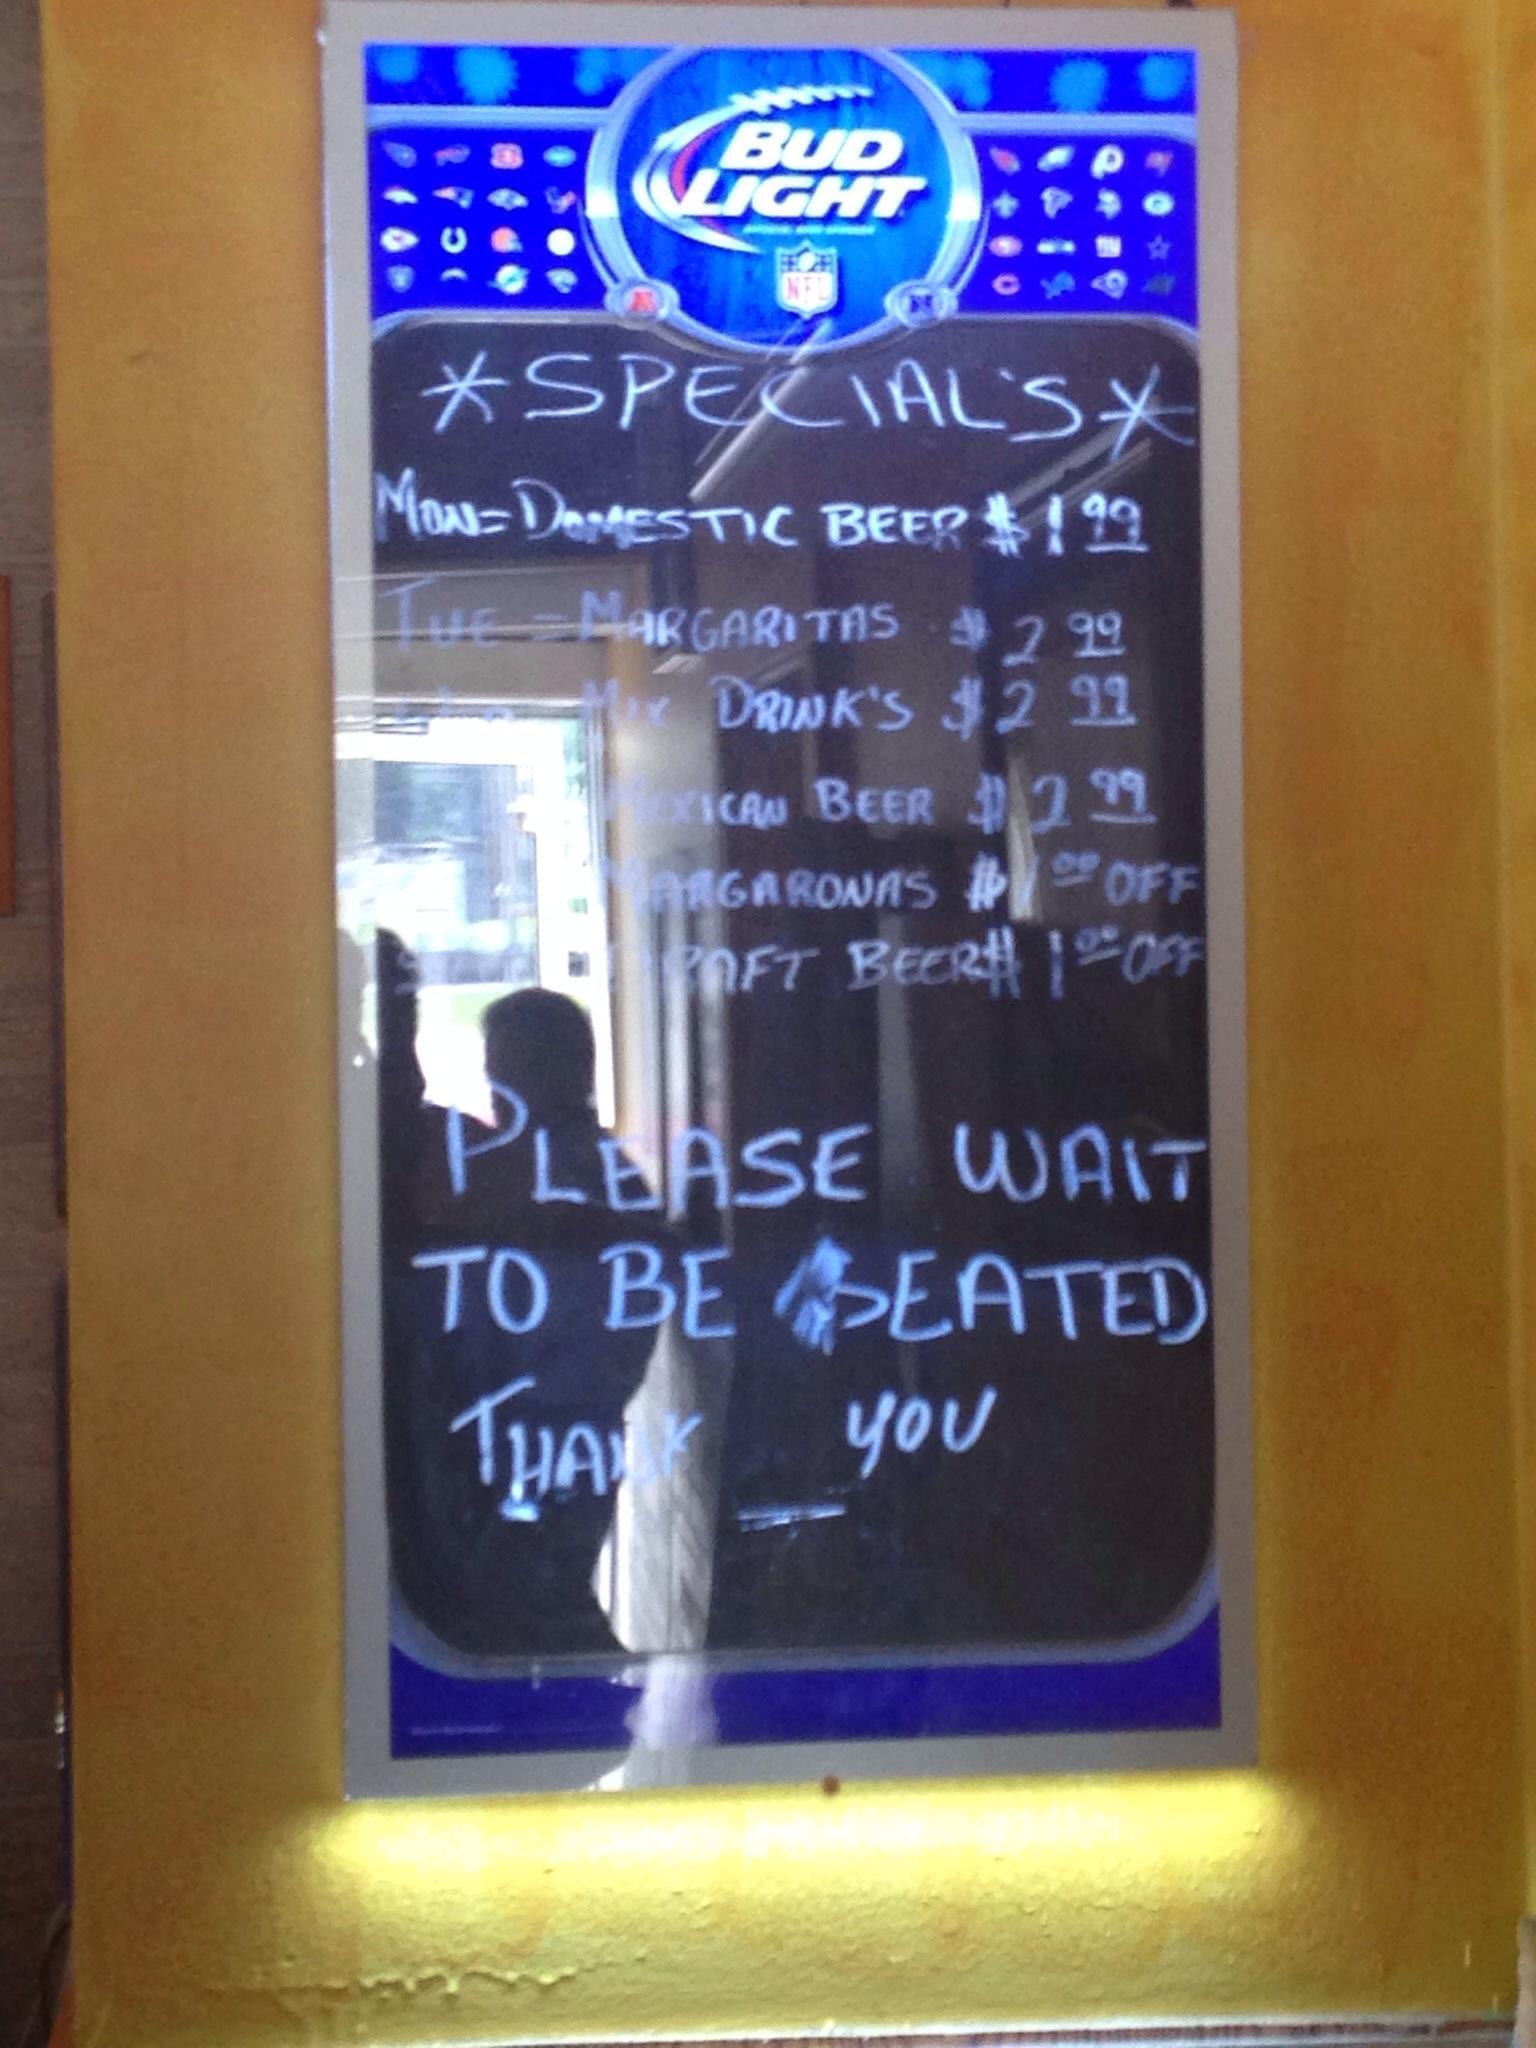 BUD
LIGHT
NFL
*SPECIAL'S*
MON=DOMESTIC BEER $1 99
TUE = MARGARITAS $2 99
MIX DRINK'S $2 99
MEXICAN BEER $2 99
MARGARONAS $1 00 OFF
BEER $1 00 OFF
PLEASE WAIT
TO BE SEATED
THANK YOU